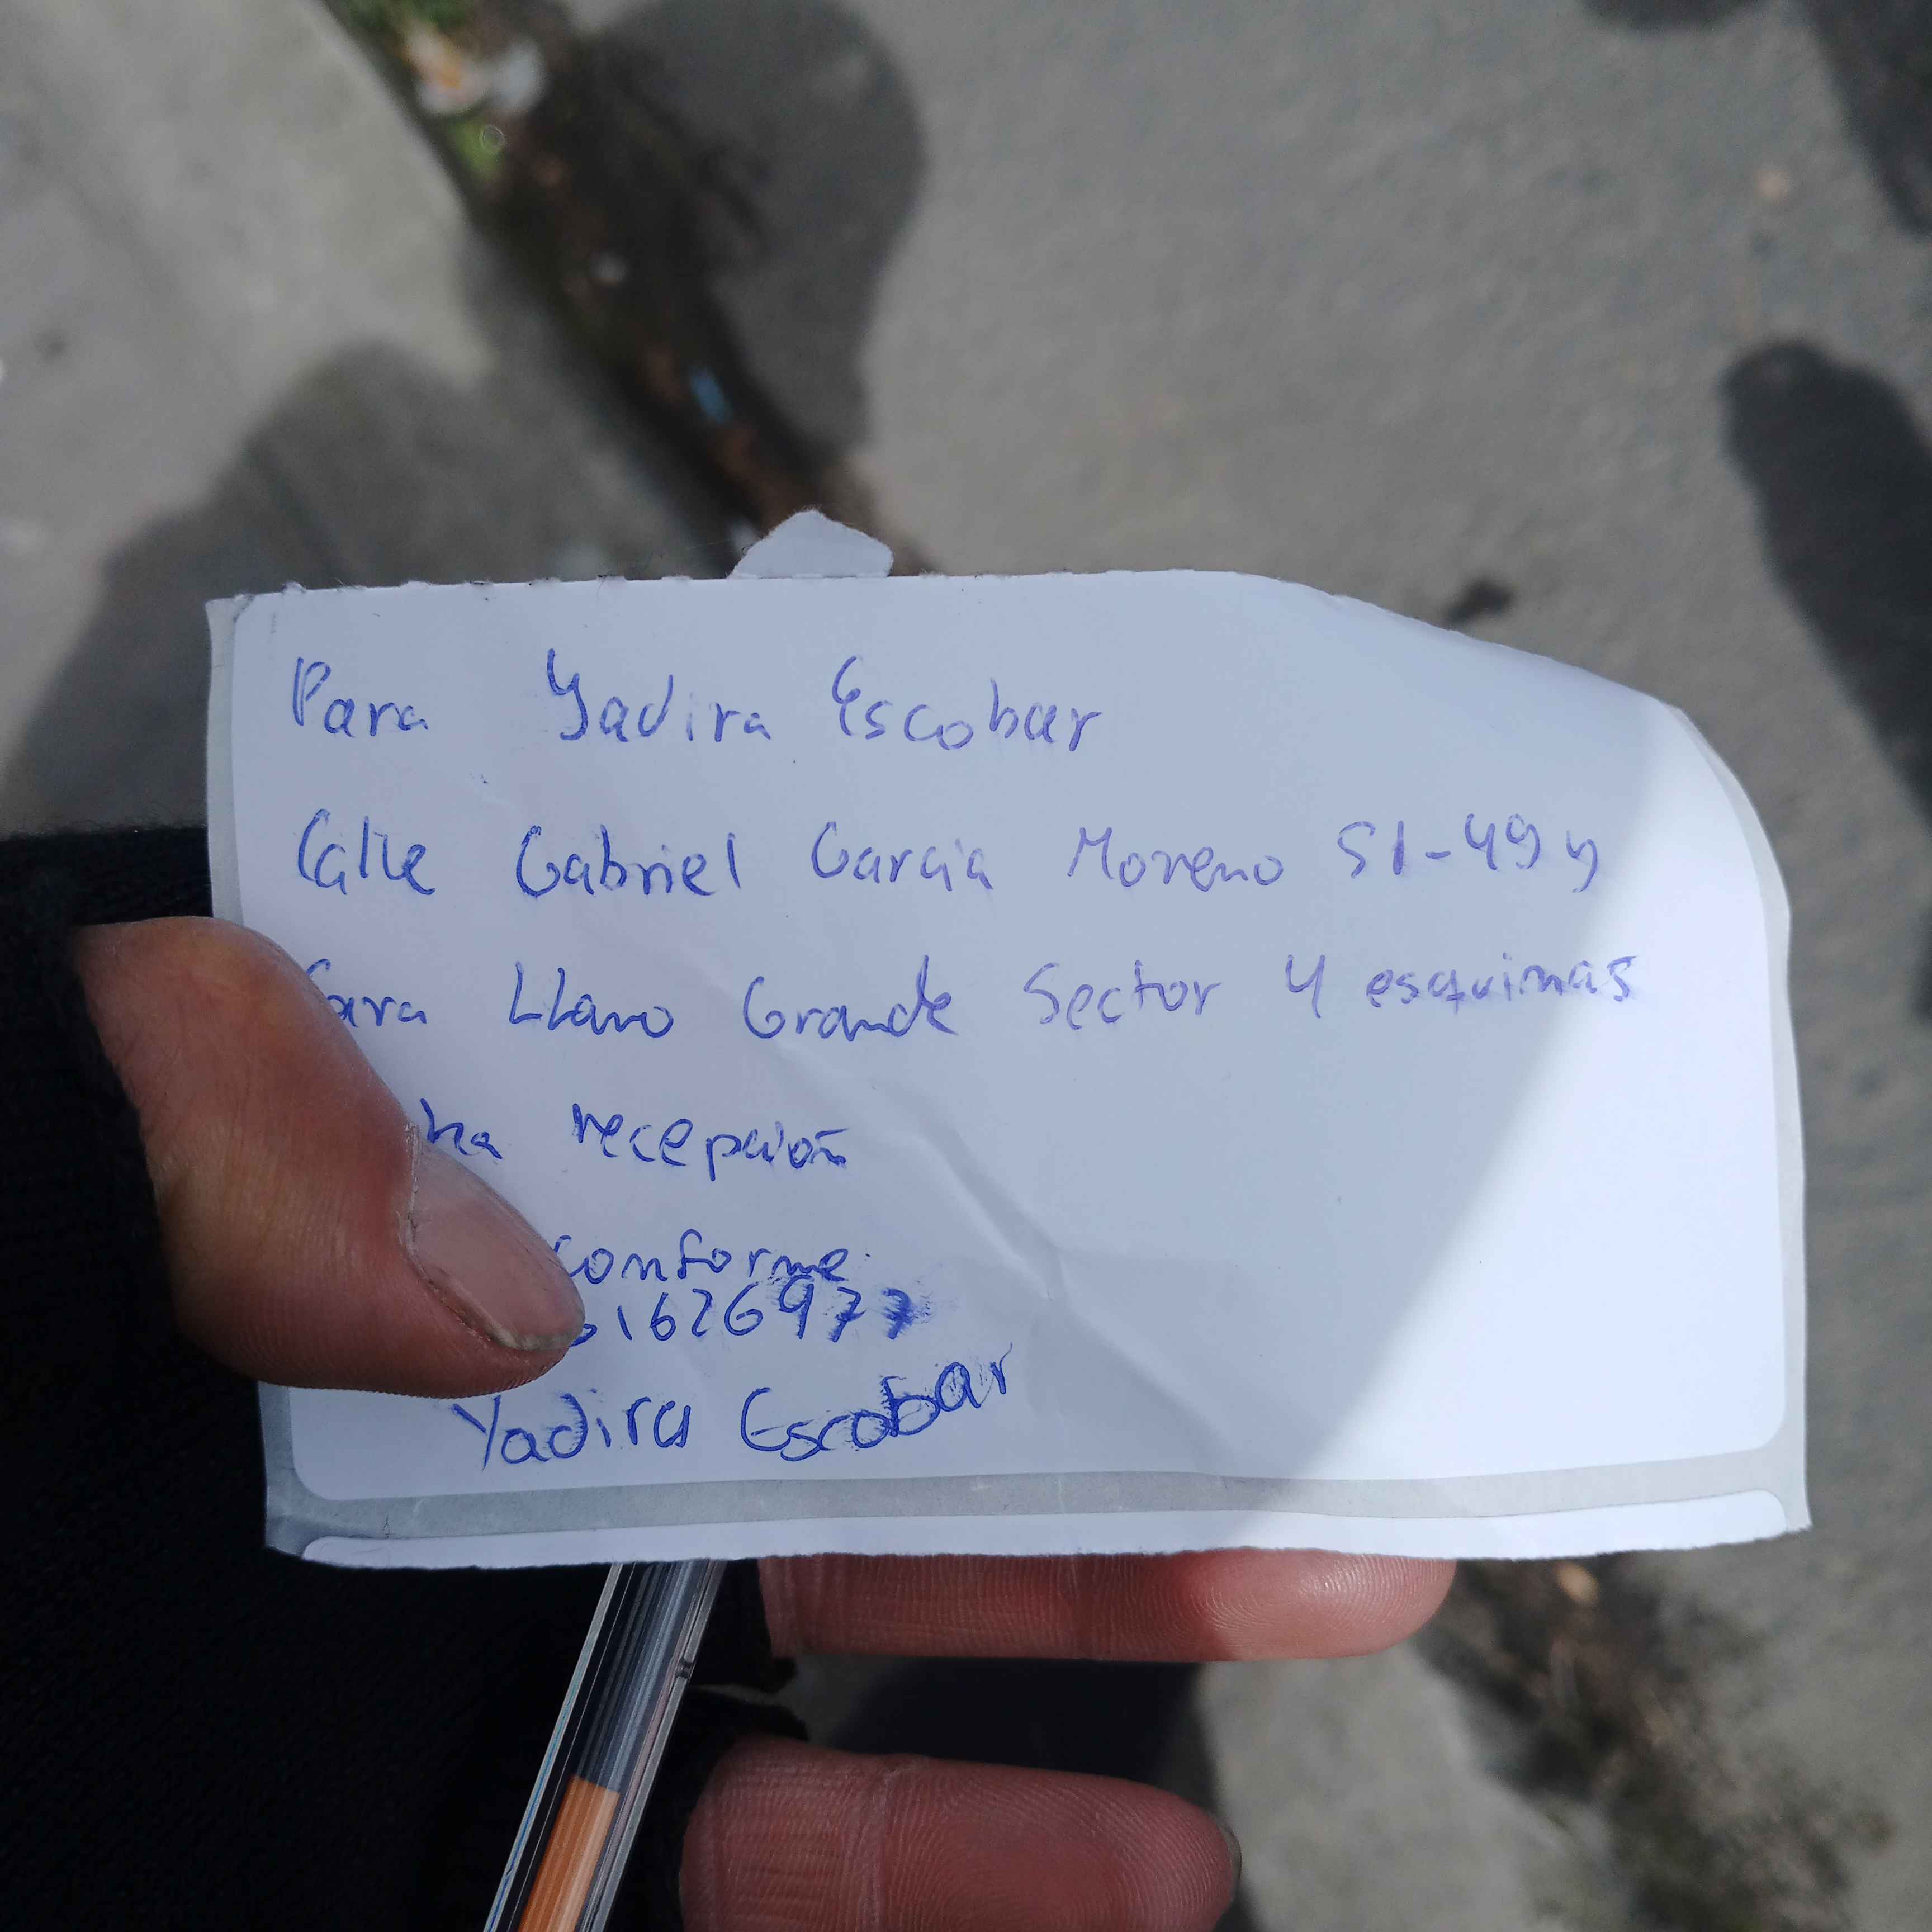 Para Yadira Escobar
Calle Gabriel Garcia Moreno S1-49 y
Llano Grande Sector 4 esquinas
recepción
conforme
1626977
Yadira Escobar